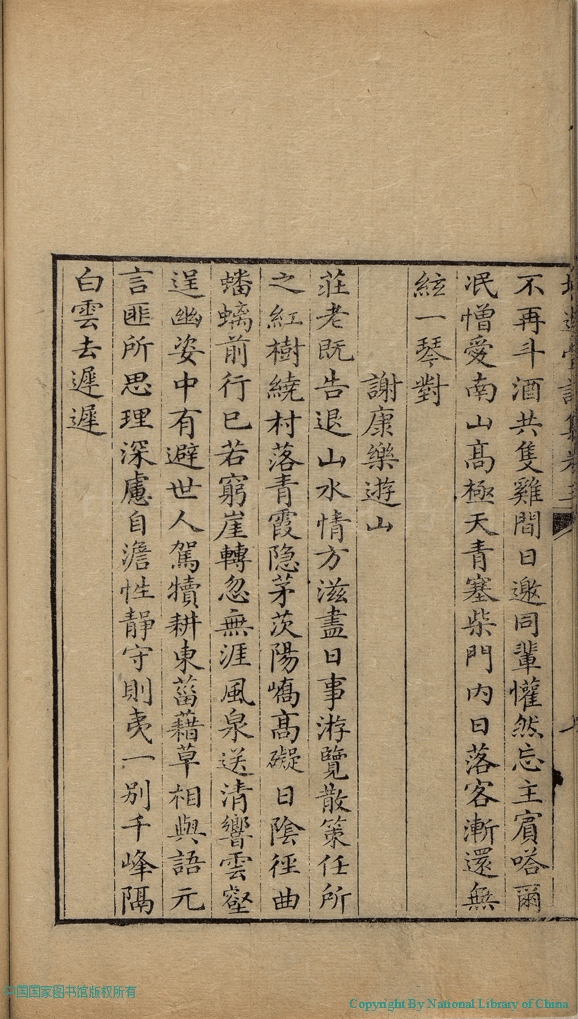 不再斗酒共隻雞間日邀同輩懽然忘主賓嗒爾
泯憎愛南山高極天青塞柴門內日落客漸還無
絃一琴對
謝康樂遊山
莊老既告退山水情方滋盡日事游覽散策任所
之紅樹繞村落青霞隐茅茨陽嶠高礙日陰徑曲
蟠螭前行已若窮崖轉忽無涯風泉送清響雲壑
逞幽姿中有避世人駕犢耕東菑藉草相與語元
言匪所思理深慮自澹性靜守則夷一别千峰隔
白雲去遲遲
中国国家图书馆版权所有
Copyright By National Library of China